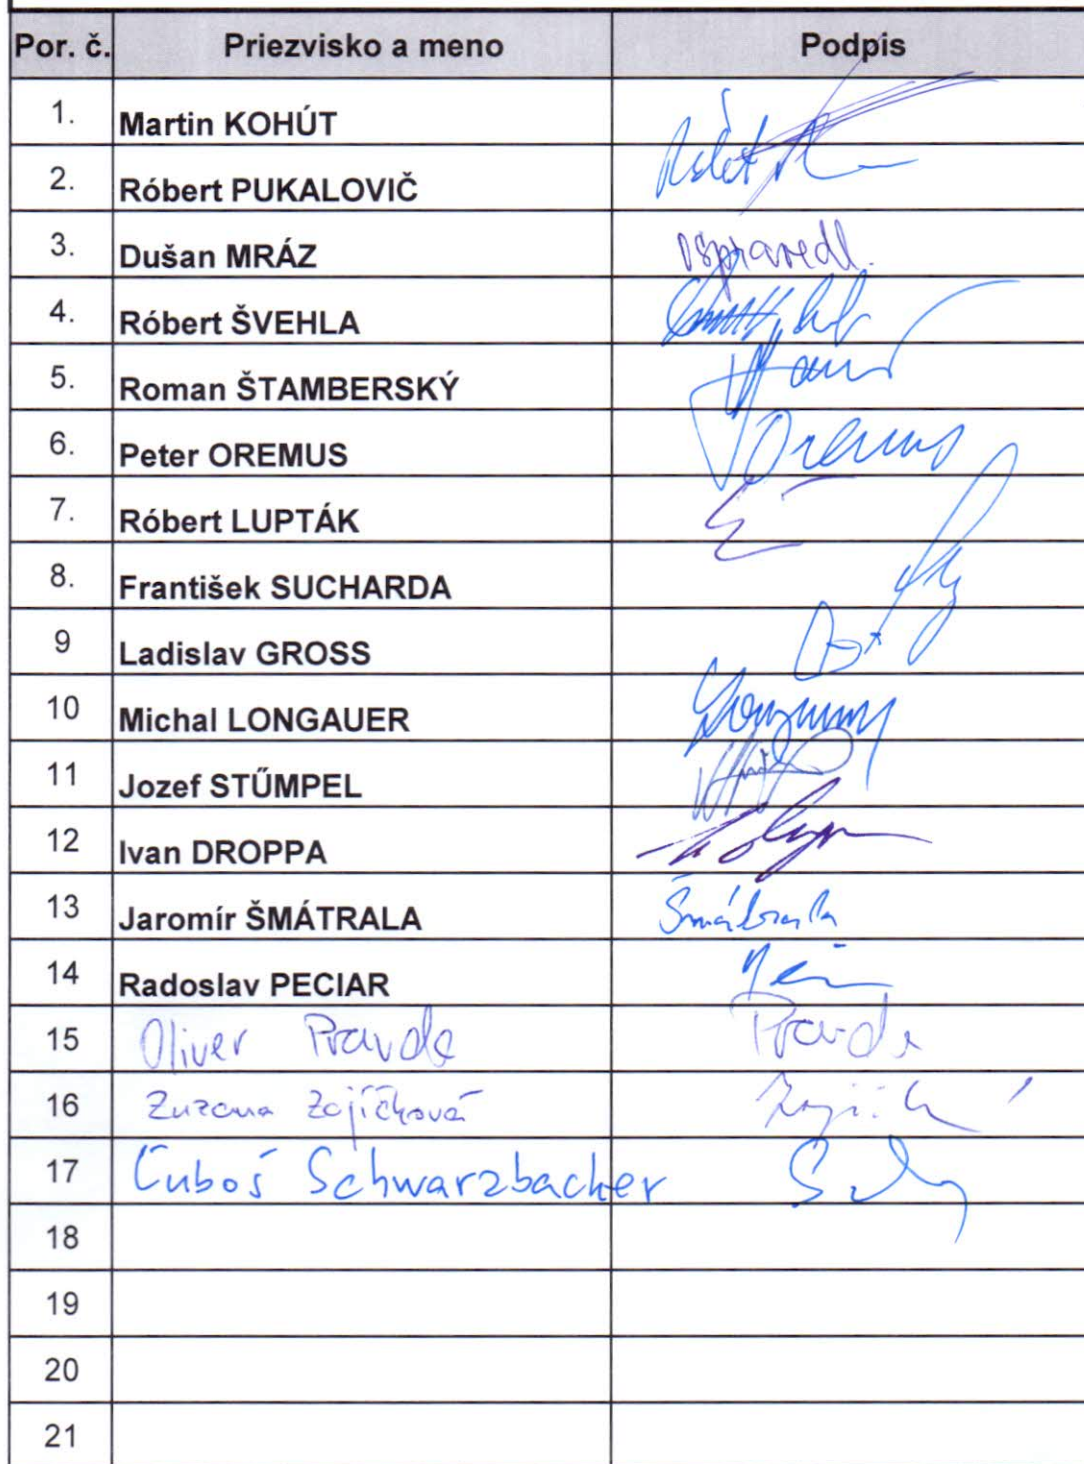 Por. č. Priezvisko a meno Podpis
1. Martin KOHÚT
2. Róbert PUKALOVIČ
3. Dušan MRÁZ ospravedl.
4. Róbert ŠVEHLA
5. Roman ŠTAMBERSKÝ
6. Peter OREMUS Oremus
7. Róbert LUPTÁK
8. František SUCHARDA
9 Ladislav GROSS
10 Michal LONGAUER
11 Jozef STŰMPEL
12 Ivan DROPPA
13 Jaromír ŠMÁTRALA Šmátrala
14 Radoslav PECIAR
15 Oliver Pravda Pravda
16 Zuzana Zajíčková
17 Ľuboš Schwarzbacher
18
19
20
21